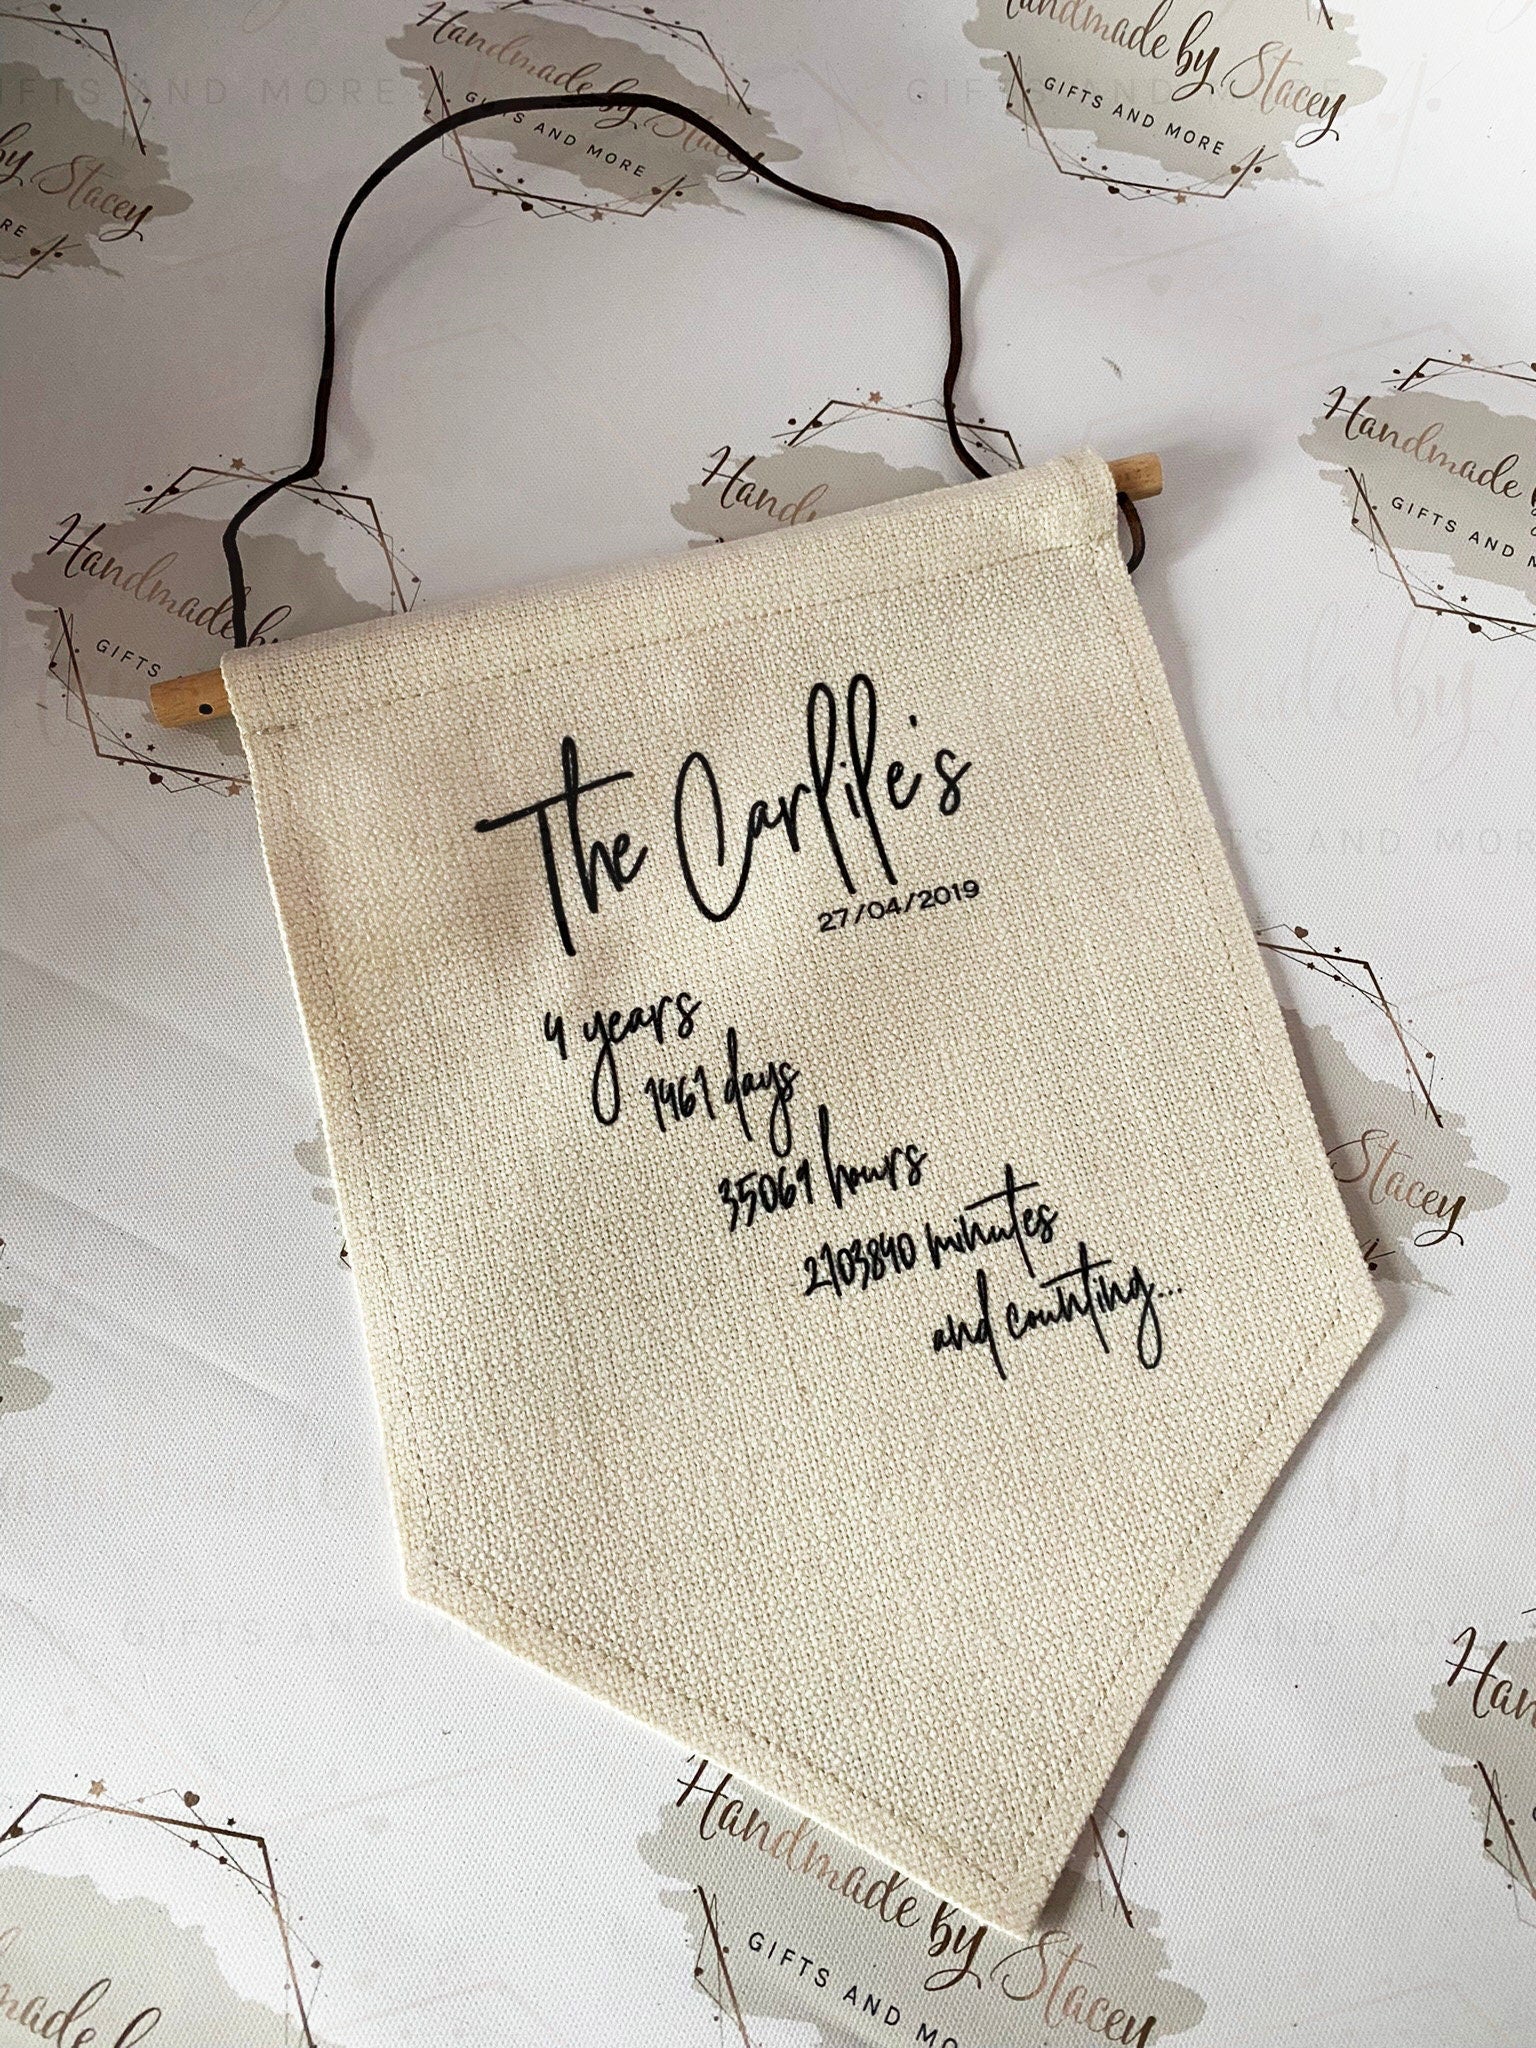 Handmade by Stacey
GIFTS AND MORE
Handmade by Stacey
GIFTS AND MORE
IFTS AND MORE
by Stacey
RE
Handmade
GIFTS AND M
Handmade by
GIFTS
Hand
The Carlile's
27/04/2019
4 years
1461 days
35061 hours
2103840 minutes
and counting...
Stacey
Han
Handmade by Stacey
GIFTS AND MO
made b